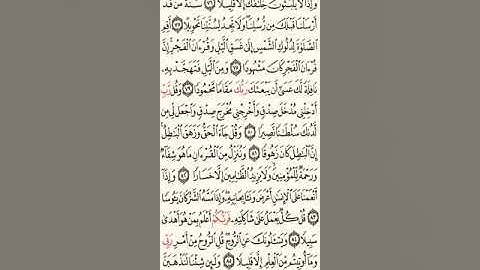 وَإِذًا لَّا يَلْبَثُونَ خِلَٰفَكَ إِلَّا قَلِيلًا ۝٧٦ سُنَّةَ مَن قَدْ
أَرْسَلْنَا قَبْلَكَ مِن رُّسُلِنَا ۖ وَلَا تَجِدُ لِسُنَّتِنَا تَحْوِيلًا ۝٧٧ أَقِمِ
ٱلصَّلَوٰةَ لِدُلُوكِ ٱلشَّمْسِ إِلَىٰ غَسَقِ ٱلَّيْلِ وَقُرْءَانَ ٱلْفَجْرِ ۖ إِنَّ
قُرْءَانَ ٱلْفَجْرِ كَانَ مَشْهُودًا ۝٧٨ وَمِنَ ٱلَّيْلِ فَتَهَجَّدْ بِهِۦ
نَافِلَةً لَّكَ عَسَىٰٓ أَن يَبْعَثَكَ رَبُّكَ مَقَامًا مَّحْمُودًا ۝٧٩ وَقُل رَّبِّ
أَدْخِلْنِى مُدْخَلَ صِدْقٍ وَأَخْرِجْنِى مُخْرَجَ صِدْقٍ وَٱجْعَل لِّى مِن
لَّدُنكَ سُلْطَٰنًا نَّصِيرًا ۝٨٠ وَقُلْ جَآءَ ٱلْحَقُّ وَزَهَقَ ٱلْبَٰطِلُ ۚ
إِنَّ ٱلْبَٰطِلَ كَانَ زَهُوقًا ۝٨١ وَنُنَزِّلُ مِنَ ٱلْقُرْءَانِ مَا هُوَ شِفَآءٌ
وَرَحْمَةٌ لِّلْمُؤْمِنِينَ ۙ وَلَا يَزِيدُ ٱلظَّٰلِمِينَ إِلَّا خَسَارًا ۝٨٢ وَإِذَآ
أَنْعَمْنَا عَلَى ٱلْإِنسَٰنِ أَعْرَضَ وَنَـَٔا بِجَانِبِهِۦ ۖ وَإِذَا مَسَّهُ ٱلشَّرُّ كَانَ يَـُٔوسًا
۝٨٣ قُلْ كُلٌّ يَعْمَلُ عَلَىٰ شَاكِلَتِهِۦ فَرَبُّكُمْ أَعْلَمُ بِمَنْ هُوَ أَهْدَىٰ
سَبِيلًا ۝٨٤ وَيَسْـَٔلُونَكَ عَنِ ٱلرُّوحِ ۖ قُلِ ٱلرُّوحُ مِنْ أَمْرِ رَبِّى
وَمَآ أُوتِيتُم مِّنَ ٱلْعِلْمِ إِلَّا قَلِيلًا ۝٨٥ وَلَئِن شِئْنَا لَنَذْهَبَنَّ